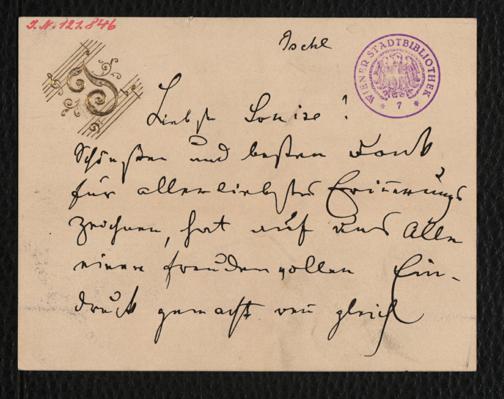 I.N. 121.846
Ischl
WIENER STADTBIBLIOTHEK
7
Liebste Louise!
Schönsten und besten Dank
für allerliebstes Erinnerungs
zeichen, hat auf uns Alle
einen freudenvollen Ein-
druck gemacht wenn gleich